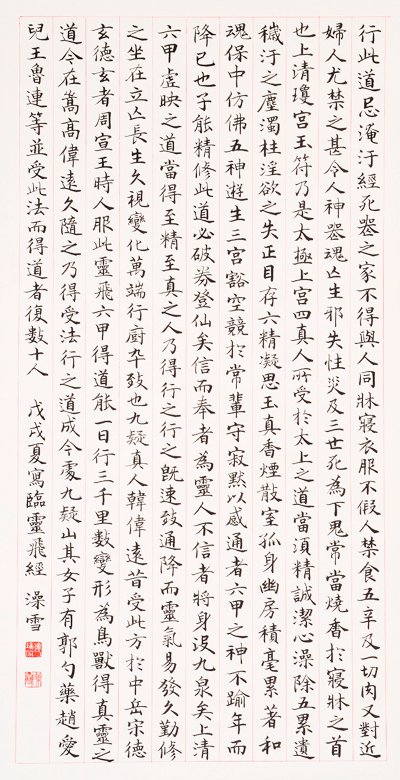 行此道忌淹汙經死喪之家不得與人同牀寢衣服不假人禁食五辛及一切肉又對近
婦人尤禁之甚令人神喪魂亡生邪失性災及三世死為下鬼常當燒香於寢牀之首
也上清瓊宮玉符乃是太極上宮四真人所受於太上之道當須精誠潔心澡除五累遺
穢汙之塵濁杜淫欲之失正目存六精凝思玉真香煙散室孤身幽房積毫累著和
魂保中仿佛五神遊生三宮豁空競於常輩守寂默以感通者六甲之神不踰年而
降已也子能精修此道必破券登仙矣信而奉者為靈人不信者將身沒九泉矣上清
六甲虛映之道當得至精至真之人乃得行之行之既速致通降而靈氣易發久勤修
之坐在立亡長生久視變化萬端行廚卒致也九疑真人韓偉遠昔受此方於中岳宋德
玄德玄者周宣王時人服此靈飛六甲得道能一日行三千里數變形為鳥獸得真靈之
道今在嵩高偉遠久隨之乃得受法行之道成今處九疑山其女子有郭勺藥趙愛
兒王魯連等並受此法而得道者復數十人 戊戌夏寫臨靈飛經 澡雪